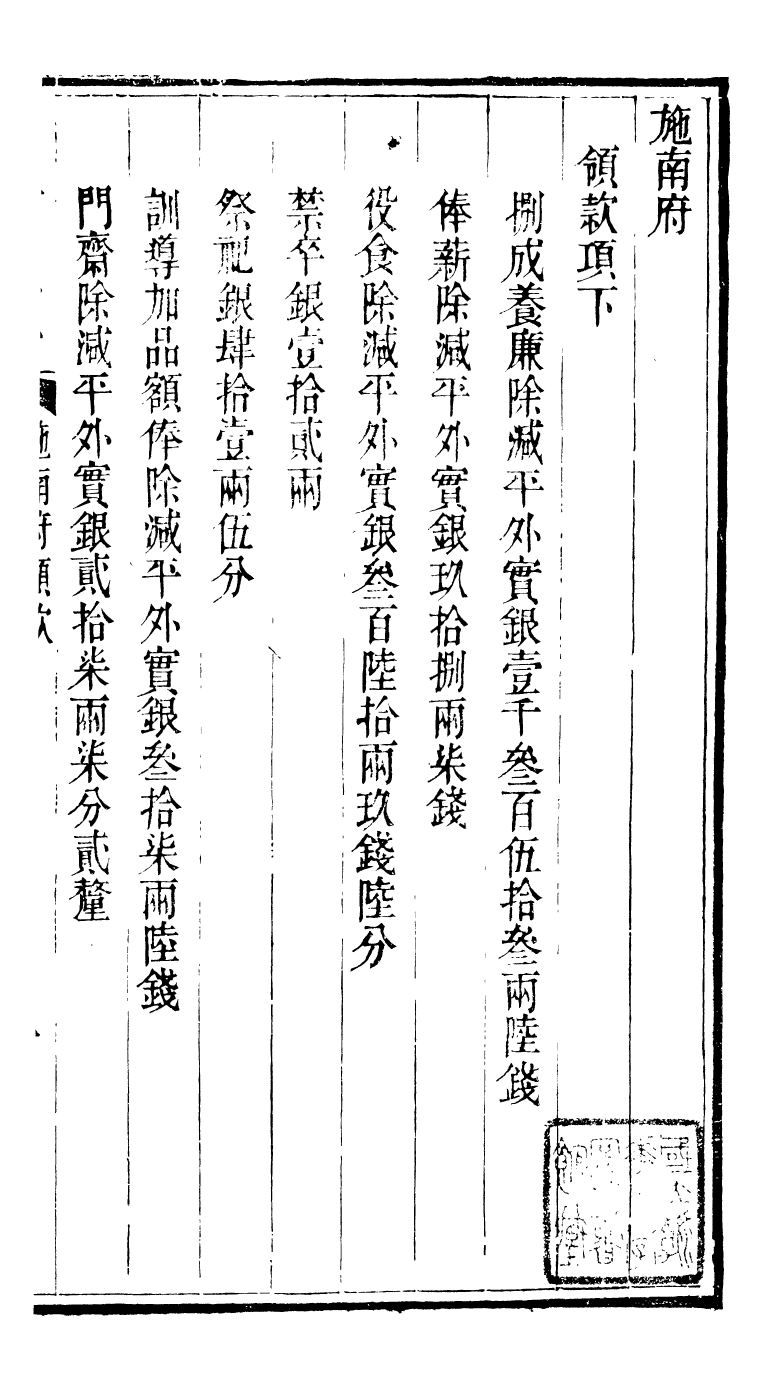 施南府
領款項下
捌成養廉除減平外實銀壹千叁百伍拾叁兩陸錢
俸薪除減平外實銀玖拾捌兩柒錢
役食除減平外實銀叁百陸拾兩玖錢陸分
禁卒銀壹拾貳兩
祭祀銀肆拾壹兩伍分
訓導加品額俸除減平外實銀叁拾柒兩陸錢
門齋除減平外實銀貳拾柒兩柒分貳釐
施南府領款